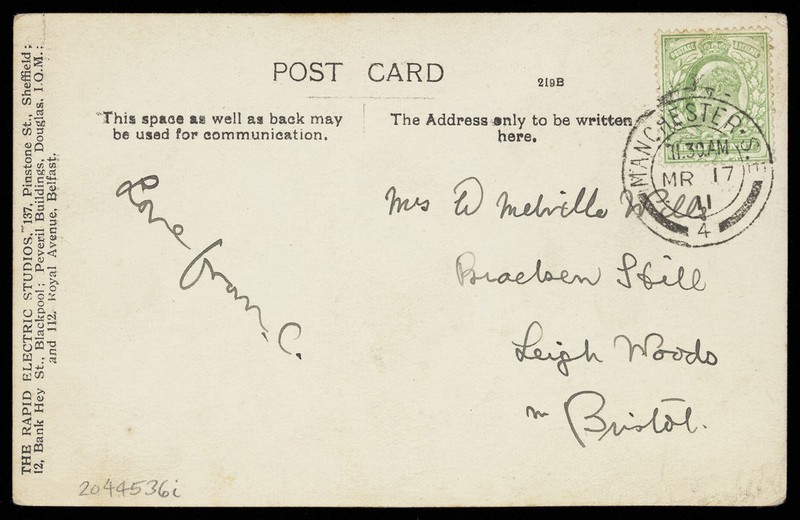 POST CARD
219B
This space as well as back may
be used for communication.
The Address only to be written
here.
POSTAGE & REVENUE
MANCHESTER. S.E.
11.30 AM
MR 17
11
4
Love from C.
Mrs W Melville Wills
Bracken Hill
Leigh Woods
nr Bristol.
THE RAPID ELECTRIC STUDIOS, 137, Pinstone St., Sheffield;
12, Bank Hey St., Blackpool; Peveril Buildings, Douglas, I.O.M.;
and 112, Royal Avenue, Belfast.
2044536i